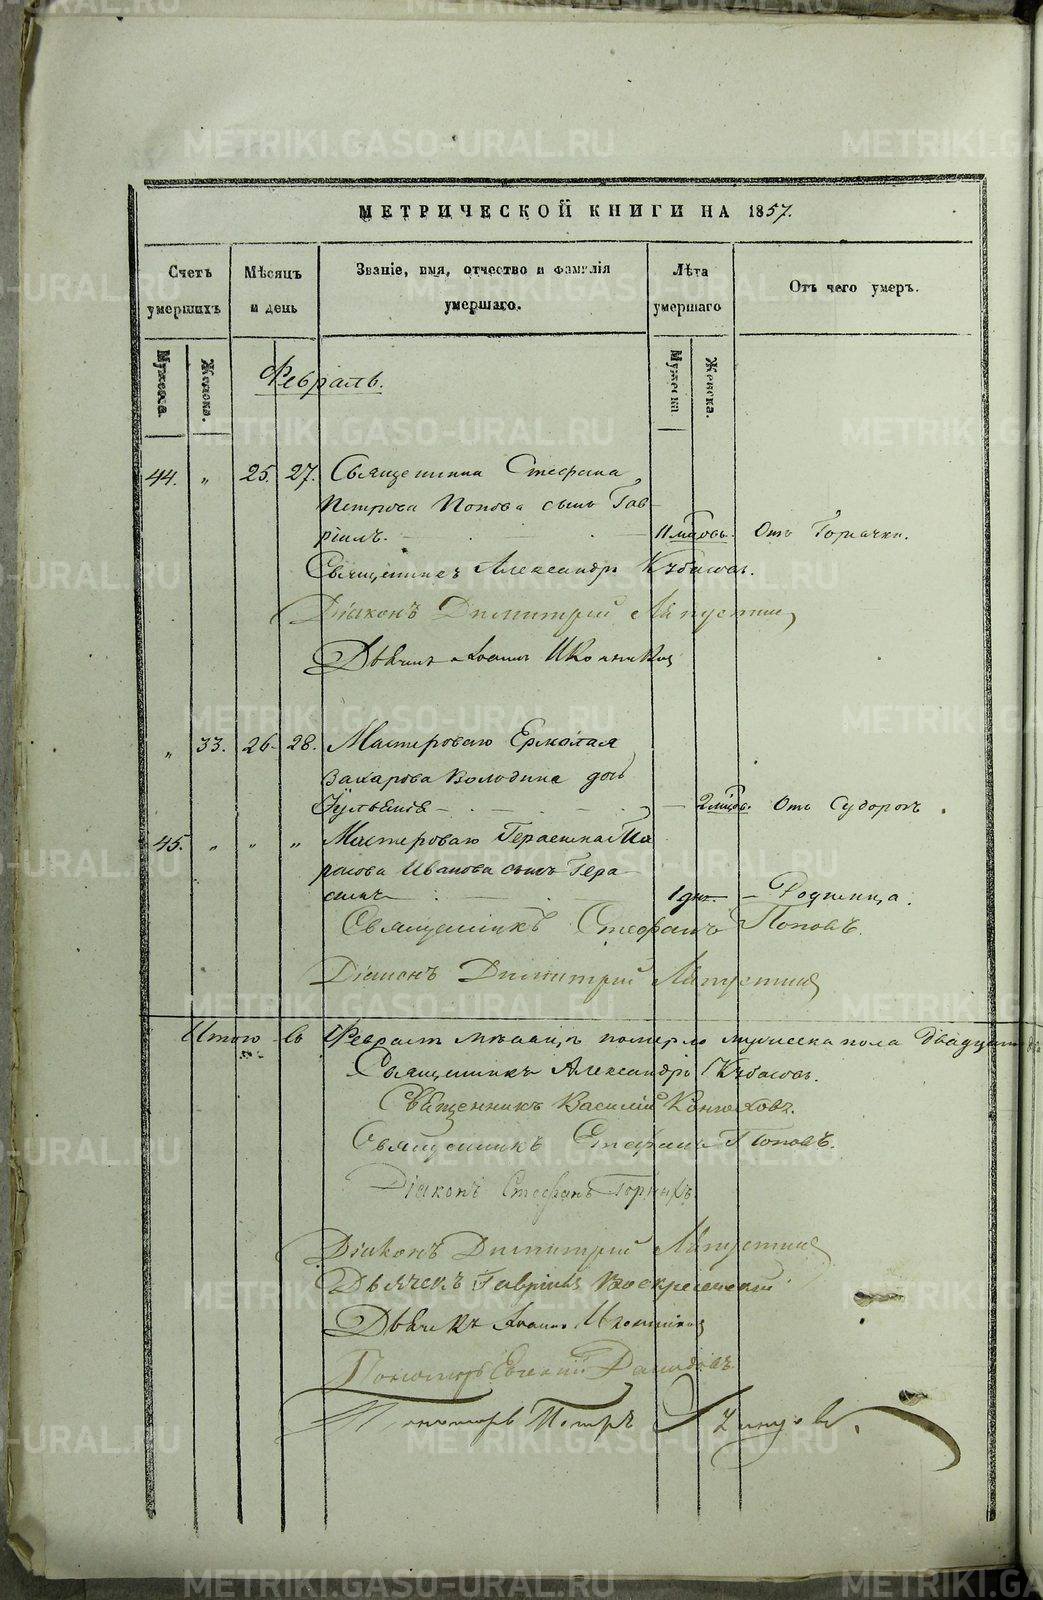 МЕТРИЧЕСКОЙ КНИГИ НА 1857.
Счетъ умершихъ
Мѣсяцъ и день
Званіе, имя, отчество и фамилія умершаго.
Лѣта умершаго
Отъ чего умеръ.
Мужеска.
Женска.
Мужеска
Женска.
Февраль.
44. " 25. 27. Священника Стефана
Петрова Попова сынъ Гав-
ріилъ. 11 мцовъ. Отъ Горячки.
Священникъ Александръ
Діаконъ Димитрій Ляпустинъ
Дьячекъ Іоаннъ Иконниковъ
" 33. 26. 28. Мастероваго Ермолая
Захарова Володина дочь
Іуліанія 2 мцовъ. Отъ Судорогъ
45. " " " Мастероваго Герасима
Иванова сынъ Гера-
симъ 1 дня. Родимца.
Священникъ Стефанъ Поповъ.
Діаконъ Димитрій Ляпустинъ
Итого въ Февралѣ мѣсяцѣ померло мужеска пола двадцать
Священникъ Александръ
Священникъ Василій Конюховъ.
Священникъ Стефанъ Поповъ.
Діаконъ Стефанъ Горныхъ
Діаконъ Димитрій Ляпустинъ
Дьячекъ Гавріилъ Воскресенскій
Дьячекъ Іоаннъ Иконниковъ
Пономарь Евгеній Давыдовъ
Пономарь Петръ
METRIKI.GASO-URAL.RU